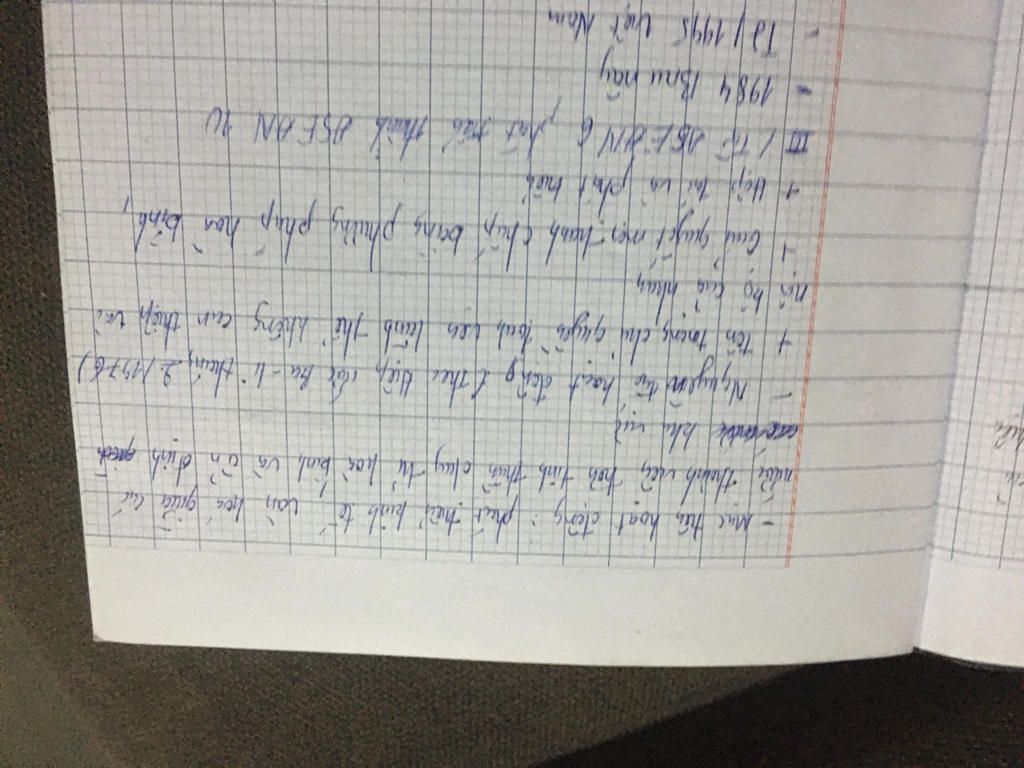 - Mục tiêu hoạt động : phát triển kinh tế văn hoá giữa các
nước thành viên, trên tinh thần duy trì hoà bình và ổn định
khu vực
- Nguyên tắc hoạt động ( theo hiệp ước Ba-li tháng 2/1976)
+ tôn trọng chủ quyền toàn vẹn lãnh thổ không can thiệp vào
nội bộ của nhau
+ Giải quyết mọi tranh chấp bằng phương pháp hoà bình,
+ Hợp tác và phát triển
III / Từ ASEAN 6 phát triển thành ASEAN 10
- 1984 Brunây
- T7/1995 Việt Nam